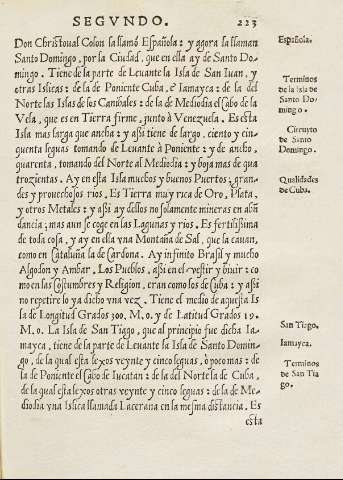 SEGVNDO. 223
Don Christoual Colon la llamó Española: y agora la llaman
Santo Domingo, por la Ciudad, que en ella ay de Santo Do-
mingo. Tiene de la parte de Leuante la Isla de San Iuan, y
otras Isleas: de la de Poniente Cuba, e Iamayca: de la del
Norte las Islas de los Canibales: de la de Mediodia el Cabo de la
Vela, que es en Tierra firme, junto à Venezuela. Es esta
Isla mas larga que ancha: y assi tiene de largo, ciento y cin-
quenta leguas tomando de Leuante à Poniente: y de ancho,
quarenta, tomando del Norte al Mediodia: y boja mas de qua
trozientas. Ay en esta Isla muchos y buenos Puertos; gran-
des y prouechosos rios. Es Tierra muy rica de Oro, Plata,
y otros Metales: y assi ay dellos no solamente mineras en abũ
dancia; mas aun se coge en las Lagunas y rios. Es fertilissima
de toda cosa, y ay en ella vna Montaña de Sal, que la cauan,
como en Cataluña la de Cardona. Ay infinito Brasil y mucho
Algodon y Ambar. Los Pueblos, assi en el vestir y biuir: co
mo en las Costumbres y Religion, eran como los de Cuba: y assi
no repetire lo ya dicho vna vez. Tiene el medio de aquesta Is
la de Longitud Grados 300. M.0. y de Latitud Grados 19.
M.0. La Isla de San Tiago, que al principio fue dicha Ia-
mayca, tiene de la parte de Leuante la Isla de Santo Domin-
go, de la qual esta lexos veynte y cinco leguas, ò poco mas: de la
de la Poniente el Cabo de Iucatan: de la del Norte la de Cuba,
de la qual esta lexos otras veynte y cinco leguas: de la de Me-
diodia vna Islica llamada Lacerana en la mesma distancia. Es
esta
Española.
Terminos
de la Isla de
Santo Do-
mingo.
Circuyto
de Santo
Domingo.
Qualidades
de Cuba.
San Tiago.
Iamayca.
Terminos
de San Tia
go.